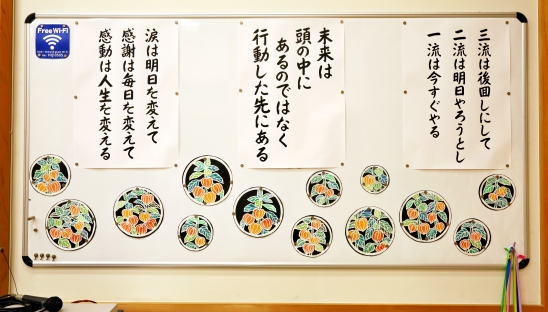 三流は後回しにして
二流は明日やろうとし
一流は今すぐやる
未来は
頭の中に
あるのではなく
行動した先にある
涙は明日を変えて
感謝は毎日を変えて
感動は人生を変える
Free Wi-Fi